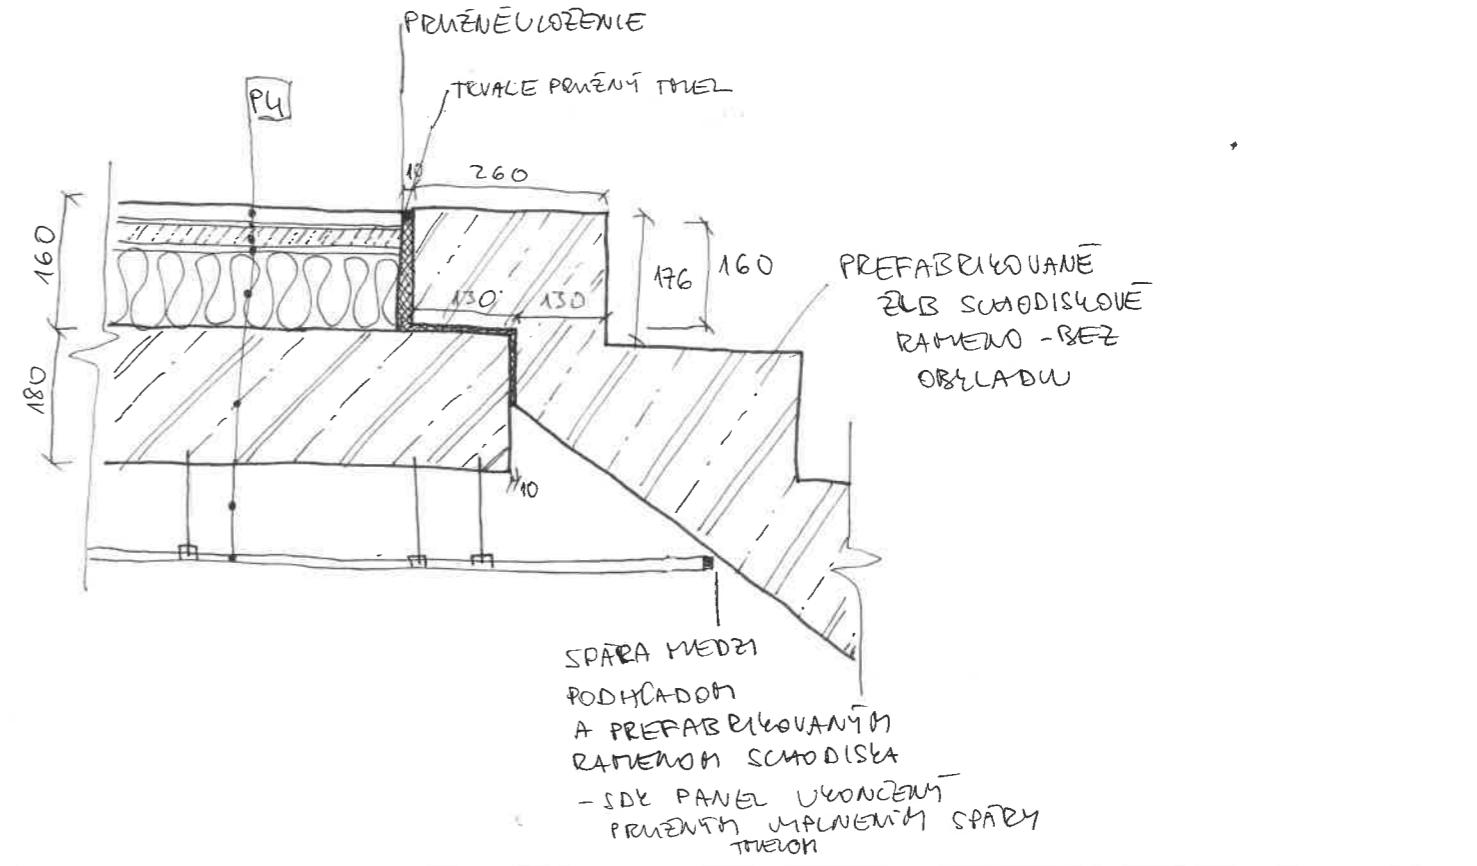 PRUŽNÉ ULOŽENIE
TRVALE PRUŽNÝ TMEL
P4
10
260
160
130
130
176
160
PREFABRIKOVANÉ
ŽLB SCHODISKOVÉ
RAMENO - BEZ
OBKLADU
180
10
SPÁRA MEDZI
PODHĽADOM
A PREFABRIKOVANÝM
RAMENOM SCHODISKA
- SDK PANEL UKONČENÝ
PRUŽNÝM VYPLNENÍM SPÁRY
TMELOM